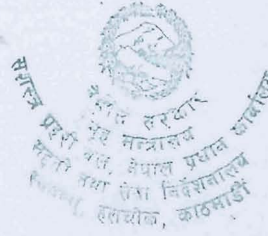 नेपाल सरकार
गृह मन्त्रालय
सशस्त्र प्रहरी बल, नेपाल प्रधान कार्यालय
भर्ती तथा सेवा निर्देशनालय
हलचोक, काठमाडौं